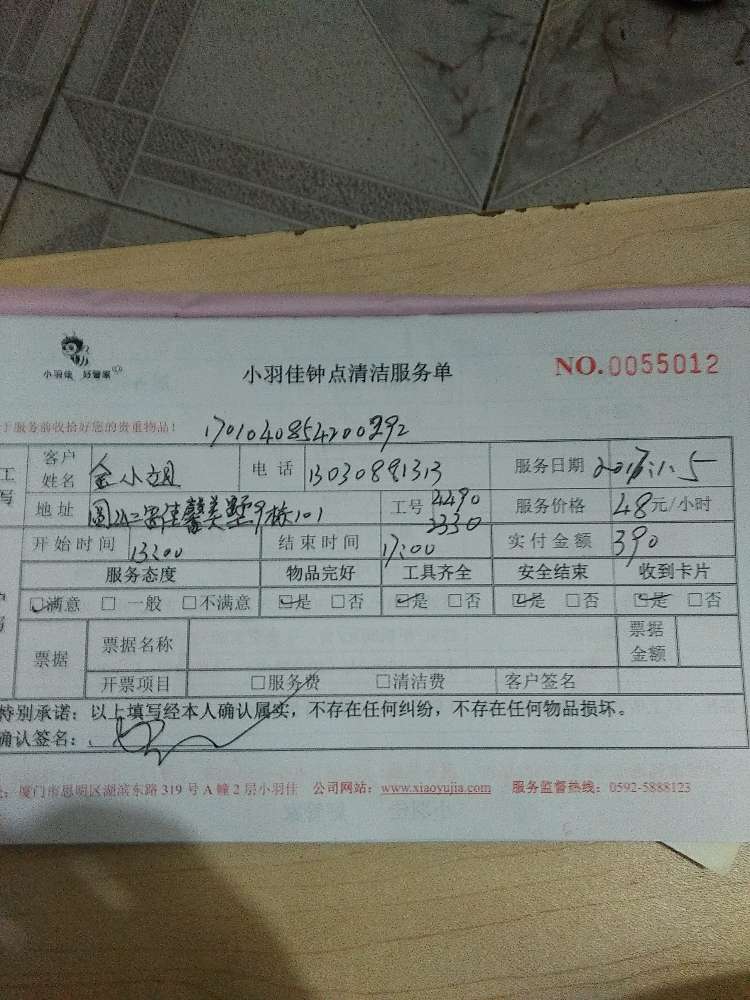 小羽佳 好管家
小羽佳钟点清洁服务单
NO.0055012
于服务前收拾好您的贵重物品！
客户姓名 金小姐 电话 13030881313 服务日期 2017.1.5
地址 9栋101 工号 2490 2330 服务价格 48元/小时
开始时间 13:00 结束时间 17:00 实付金额 390
服务态度 物品完好 工具齐全 安全结束 收到卡片
满意 一般 不满意 是 否 是 否 是 否 是 否
票据 票据名称 票据金额
开票项目 服务费 清洁费 客户签名
特别承诺：以上填写经本人确认属实，不存在任何纠纷，不存在任何物品损坏。
确认签名：
厦门市思明区湖滨东路319号A幢2层小羽佳 公司网站：www.xiaoyujia.com 服务监督热线：0592-5888123